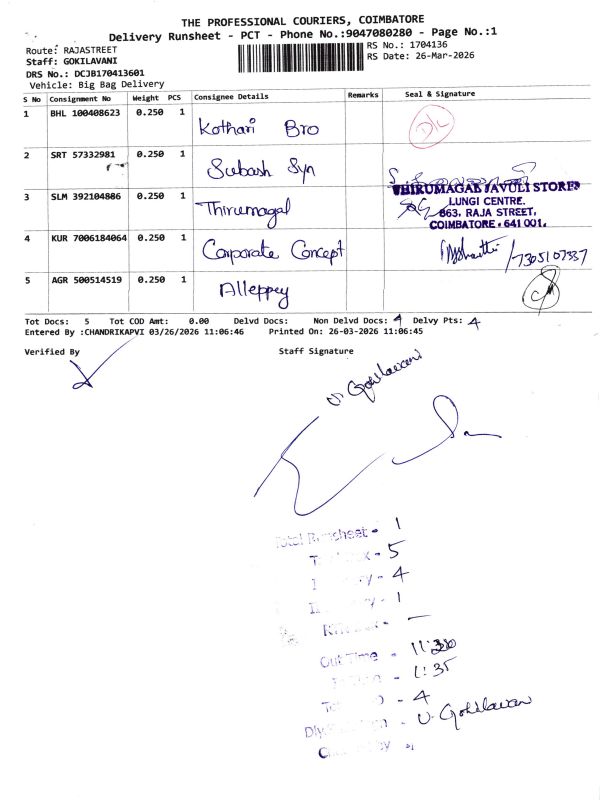 THE PROFESSIONAL COURIERS, COIMBATORE
Delivery Runsheet - PCT - Phone No.:9047080280 - Page No.:1
Route: RAJASTREET
RS No.: 1704136
Staff: GOKILAVANI
RS Date: 26-Mar-2026
DRS No.: DCJB170413601
Vehicle: Big Bag Delivery
S No Consignment No Weight PCS Consignee Details Remarks Seal & Signature
1 BHL 100408623 0.250 1 Kothari Bro D/L
2 SRT 57332981 0.250 1 Subash Syn
3 SLM 392104886 0.250 1 Thirumagal
THIRUMAGAL JAVULI STORES
LUNGI CENTRE.
663, RAJA STREET,
COIMBATORE - 641 001.
4 KUR 7006184064 0.250 1 Corporate Concept 7305107337
5 AGR 500514519 0.250 1 Alleppey
Tot Docs: 5 Tot COD Amt: 0.00 Delvd Docs: Non Delvd Docs: 4 Delvy Pts: 4
Entered By :CHANDRIKAPVI 03/26/2026 11:06:46 Printed On: 26-03-2026 11:06:45
Verified By Staff Signature
U. Gokilavani
Total Runsheet - 1
- 5
- 4
- 1
-
Out Time - 11:30
- 1:35
- 4
- U. Gokilavani